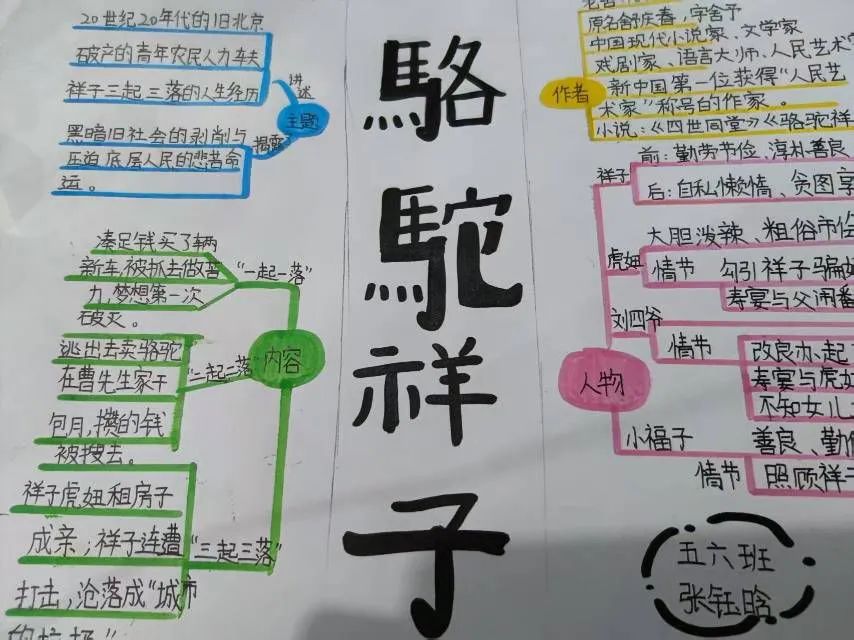 20世纪20年代的旧北京
破产的青年农民人力车夫
祥子三起三落的人生经历
讲述
主题
揭露了
黑暗旧社会的剥削与
压迫底层人民的悲苦命
运。
凑足钱买了辆
新车,被抓去做苦
力,梦想第一次
破灭。
"一起一落"
逃出去卖骆驼
在曹先生家干
包月,攒的钱
被搜去。
"二起二落"
内容
祥子虎妞租房子
成亲;祥子连遭
打击,沦落成"城市
的垃圾"
"三起三落"
駱
駝
祥
子
原名舒庆春,字舍予
中国现代小说家、文学家
戏剧家、语言大师、人民艺术
新中国第一位获得"人民艺
术家"称号的作家。
小说:《四世同堂》《骆驼祥
作者
祥子
前:勤劳节俭、淳朴善良
后:自私懒惰、贪图享
虎妞
大胆泼辣、粗俗市侩
情节
勾引祥子骗婚
寿宴与父闹番
刘四爷
情节
改良办、起
寿宴与虎妞
不知女儿
人物
小福子
善良、勤俭
情节
照顾祥子
五六班
张钰晗